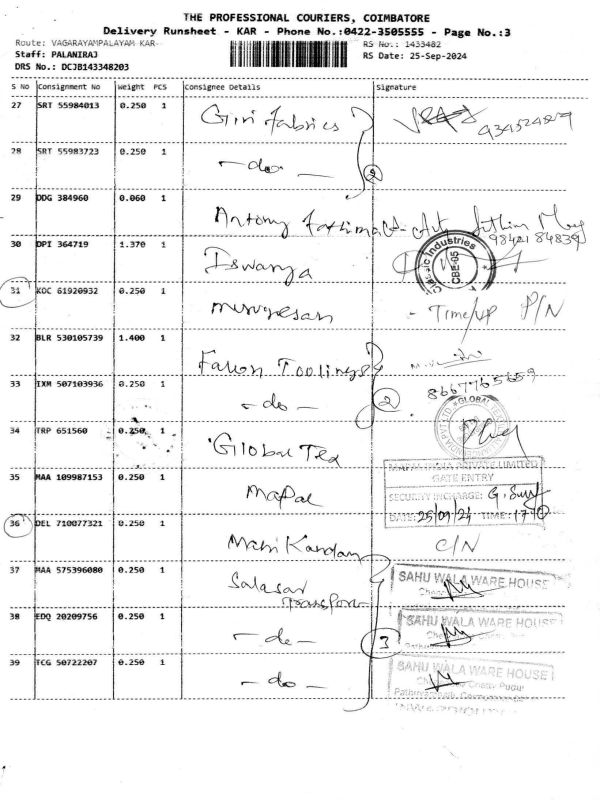 THE PROFESSIONAL COURIERS, COIMBATORE
Delivery Runsheet - KAR - Phone No.:0422-3505555 - Page No.:3
Route: VAGARAYAMPALAYAM KAR
RS No.: 1433482
Staff: PALANIRAJ
RS Date: 25-Sep-2024
DRS No.: DCJB143348203
S No Consignment No Weight PCS Consignee Details Signature
27 SRT 55984013 0.250 1 Giri fabrics
28 SRT 55983723 0.250 1 - do - 2
29 DDG 384960 0.060 1 Antony
9842184839
30 DPI 364719 1.370 1 Iswarya
Classic Industries
CBE-05
31 KOC 61920932 0.250 1 murugesan - Time/up P/N
32 BLR 530105739 1.400 1 Falcon Toolings
8667765659
33 IXM 507103936 0.250 1 - do - 2
34 TRP 651560 0.250 1 Global Tex
GLOBAL
35 MAA 109987153 0.250 1 mapal
MAPAL INDIA PRIVATE LIMITED
GATE ENTRY
SECURITY INCHARGE:
DATE: 25/09/24 TIME:
36 DEL 710077321 0.250 1 Mani Kandan C/N
37 MAA 575396080 0.250 1 Salasar Transport
SAHU WALA WARE HOUSE
38 EDQ 20209756 0.250 1 - do - 3
SAHU WALA WARE HOUSE
39 TCG 50722207 0.250 1 - do -
SAHU WALA WARE HOUSE